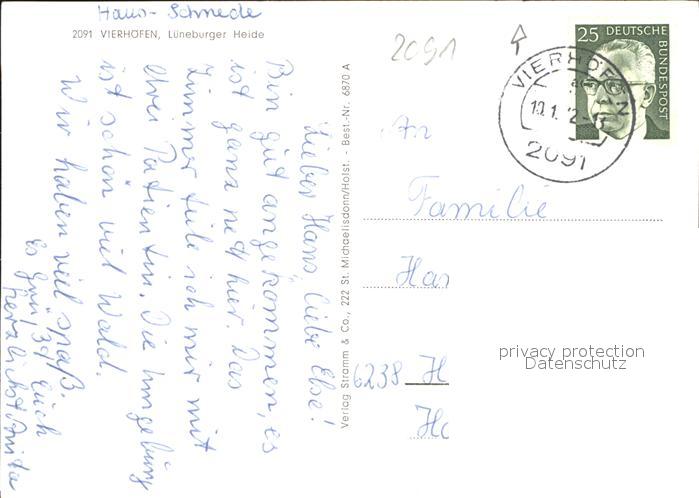 Haus-Schnede
2091 VIERHÖFEN, Lüneburger Heide
Lieber Hans, liebe Else!
Bin gut angekommen, es
ist ganz nett hier. Das
Zimmer teile ich mir mit
drei Patientin. Die Umgebung
ist schön viel Wald.
Wir haben viel Spaß.
Es grüßt Euch
herzlichst Anita
Verlag Stramm & Co., 222 St. Michaelisdonn/Holst. - Best.-Nr. 6870 A
2091
25 DEUTSCHE BUNDESPOST
VIERHÖFEN
2091
An
Familie
Han
6238 H
privacy protection
Datenschutz